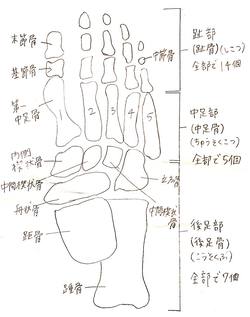 末節骨
基節骨
中節骨
趾部
(趾骨)(しこつ)
全部で14個
第一
中足骨
2
3
4
5
中足部
(中足骨)
(ちゅうそくこつ)
全部で5個
内側
楔状骨
中間楔状骨
立方骨
中間楔状
骨
舟状骨
距骨
踵骨
後足部
(後足骨)
(こうそくぶ)
全部で7個